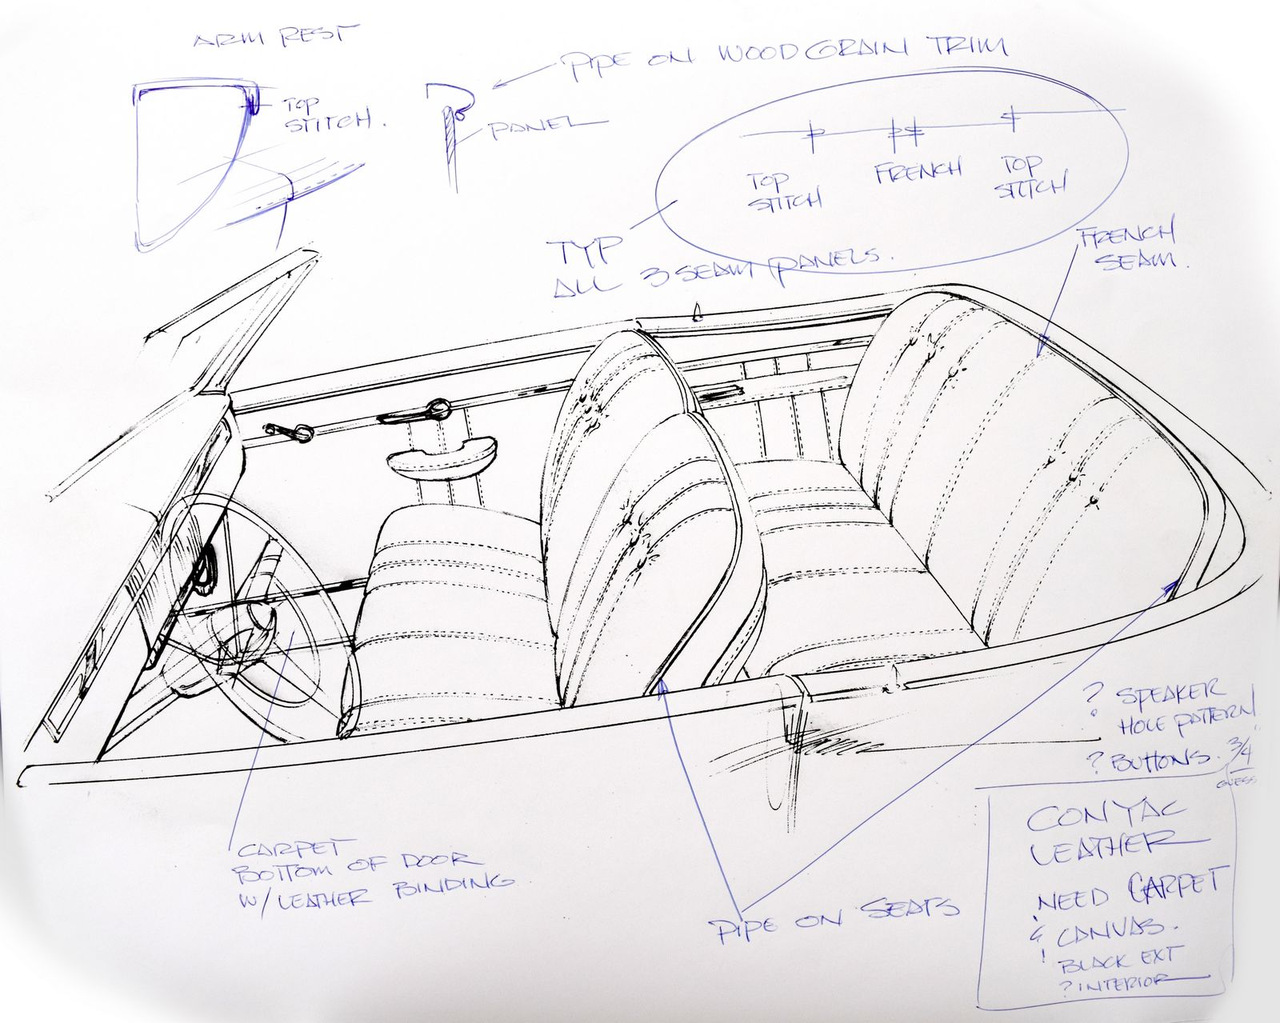 ARM REST
TOP
STITCH.
PIPE ON WOODGRAIN TRIM
PANEL
TOP
STITCH
FRENCH
TOP
STITCH
TYP
ALL 3 SEAM PANELS.
FRENCH
SEAM.
? SPEAKER
HOLE PATTERN
? BUTTONS. 3/4"
GUESS
CONYAC
LEATHER
NEED CARPET
& CANVAS.
! BLACK EXT
? INTERIOR
CARPET
BOTTOM OF DOOR
W/ LEATHER BINDING
PIPE ON SEATS